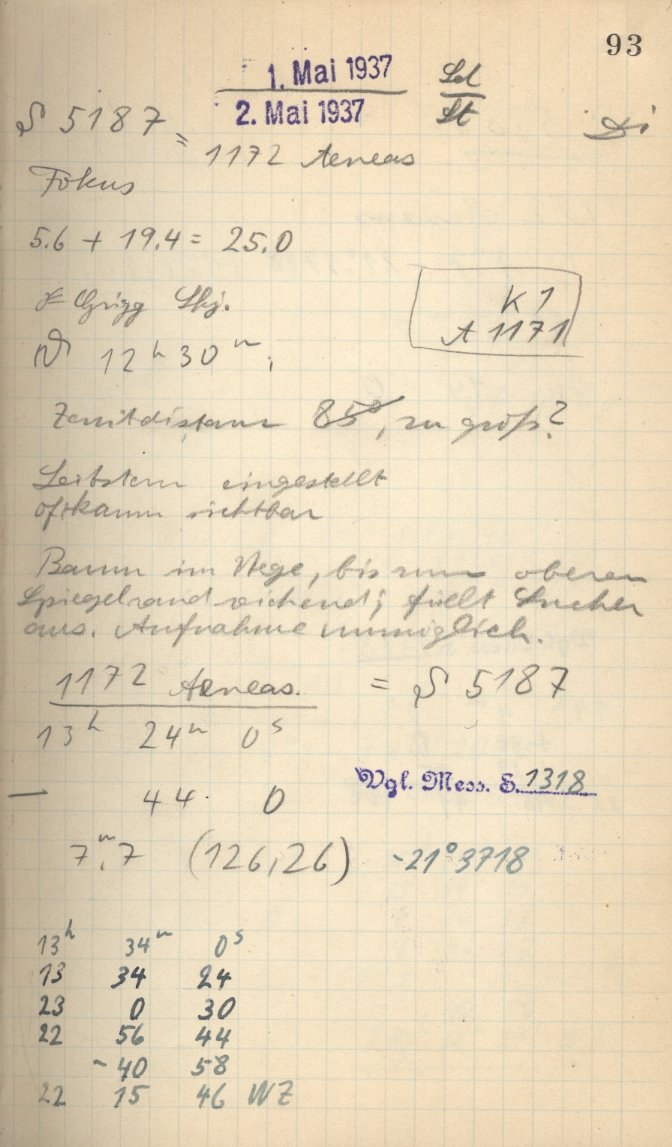 93
1. Mai 1937
2. Mai 1937
S 5187 =
1172 Aeneas
Fokus
5.6 + 19.4 = 25.0
Grigg Skj.
K 1
A 1171
12ʰ 30ᵐ
Zenitdistanz 85°, zu groß?
Leitstern eingestellt
oft kaum sichtbar
Baum im Wege, bis zum oberen
Spiegelrand reichend; füllt Sucher
aus. Aufnahme unmöglich.
1172 Aeneas. = S 5187
13ʰ 24ᵐ 0ˢ
Vgl. Mess. S. 1318
— 44. 0
7ᵐ.7 (126,26) -21°3718
13ʰ 34ᵐ 0ˢ
13 34 24
23 0 30
22 56 44
-40 58
22 15 46 WZ